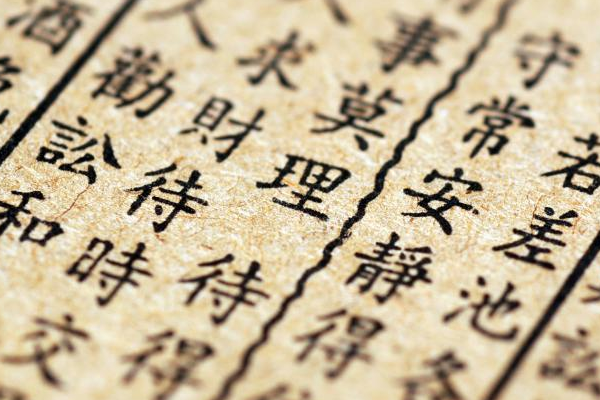 訟
若差池
守常安靜得
事莫理待得
求財待時交
人勸訟和
酒